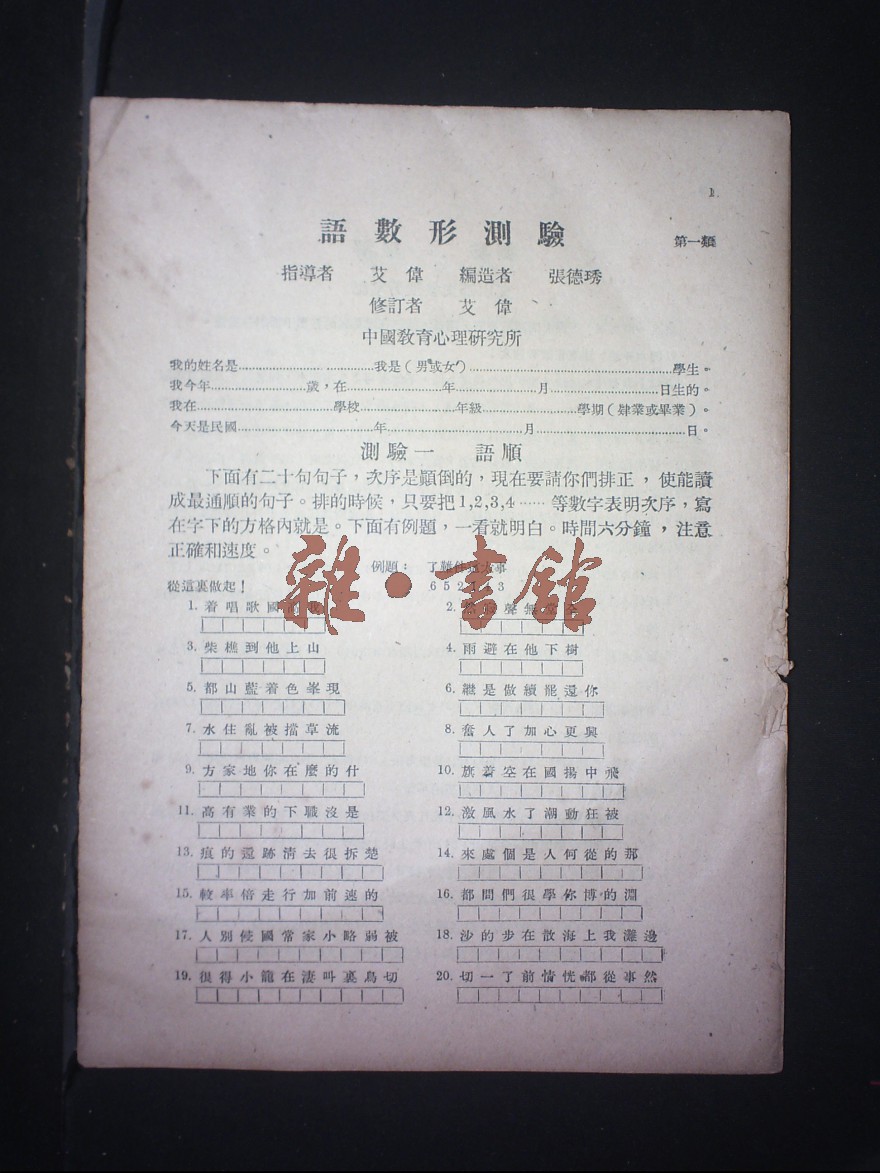 1.
語數形測驗 第一類
指導者 艾偉 編造者 張德琇
修訂者 艾偉
中國教育心理研究所
我的姓名是……………………我是(男或女)……………………學生。
我今年……………………歲,在……………………年……………………月……………………日生的。
我在……………………學校……………………年級……………………學期(肄業或畢業)。
今天是民國……………………年……………………月……………………日。
測驗一 語順
下面有二十句句子,次序是顚倒的,現在要請你們排正,使能讀
成最通順的句子。排的時候,只要把1,2,3,4……等數字表明次序,寫
在字下的方格內就是。下面有例題,一看就明白。時間六分鐘,注意
正確和速度。
例題:
從這裏做起!
雜·書館
1. 着唱歌國
2. 聲
3. 柴樵到他上山
4. 雨避在他下樹
5. 都山藍着色峯現
6. 繼是做續罷還你
7. 水住亂被擋草流
8. 奮人了加心更興
9. 方家地你在麼的什
10. 旗着空在國揚中飛
11. 高有業的下職沒是
12. 激風水了潮動狂被
13. 痕的還跡清去很拆楚
14. 來處個是人何從的那
15. 較車倍走行加前速的
16. 都問們很學你博的淵
17. 人別候國常家小略弱被
18. 沙的步在散海上我灘邊
19. 很得小籠在淒叫裏鳥切
20. 切一了前情恍都從事然